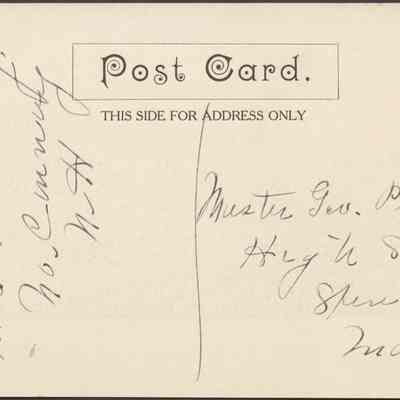 Post Card.
THIS SIDE FOR ADDRESS ONLY
No. Conway
N H
Master Geo. P
High S